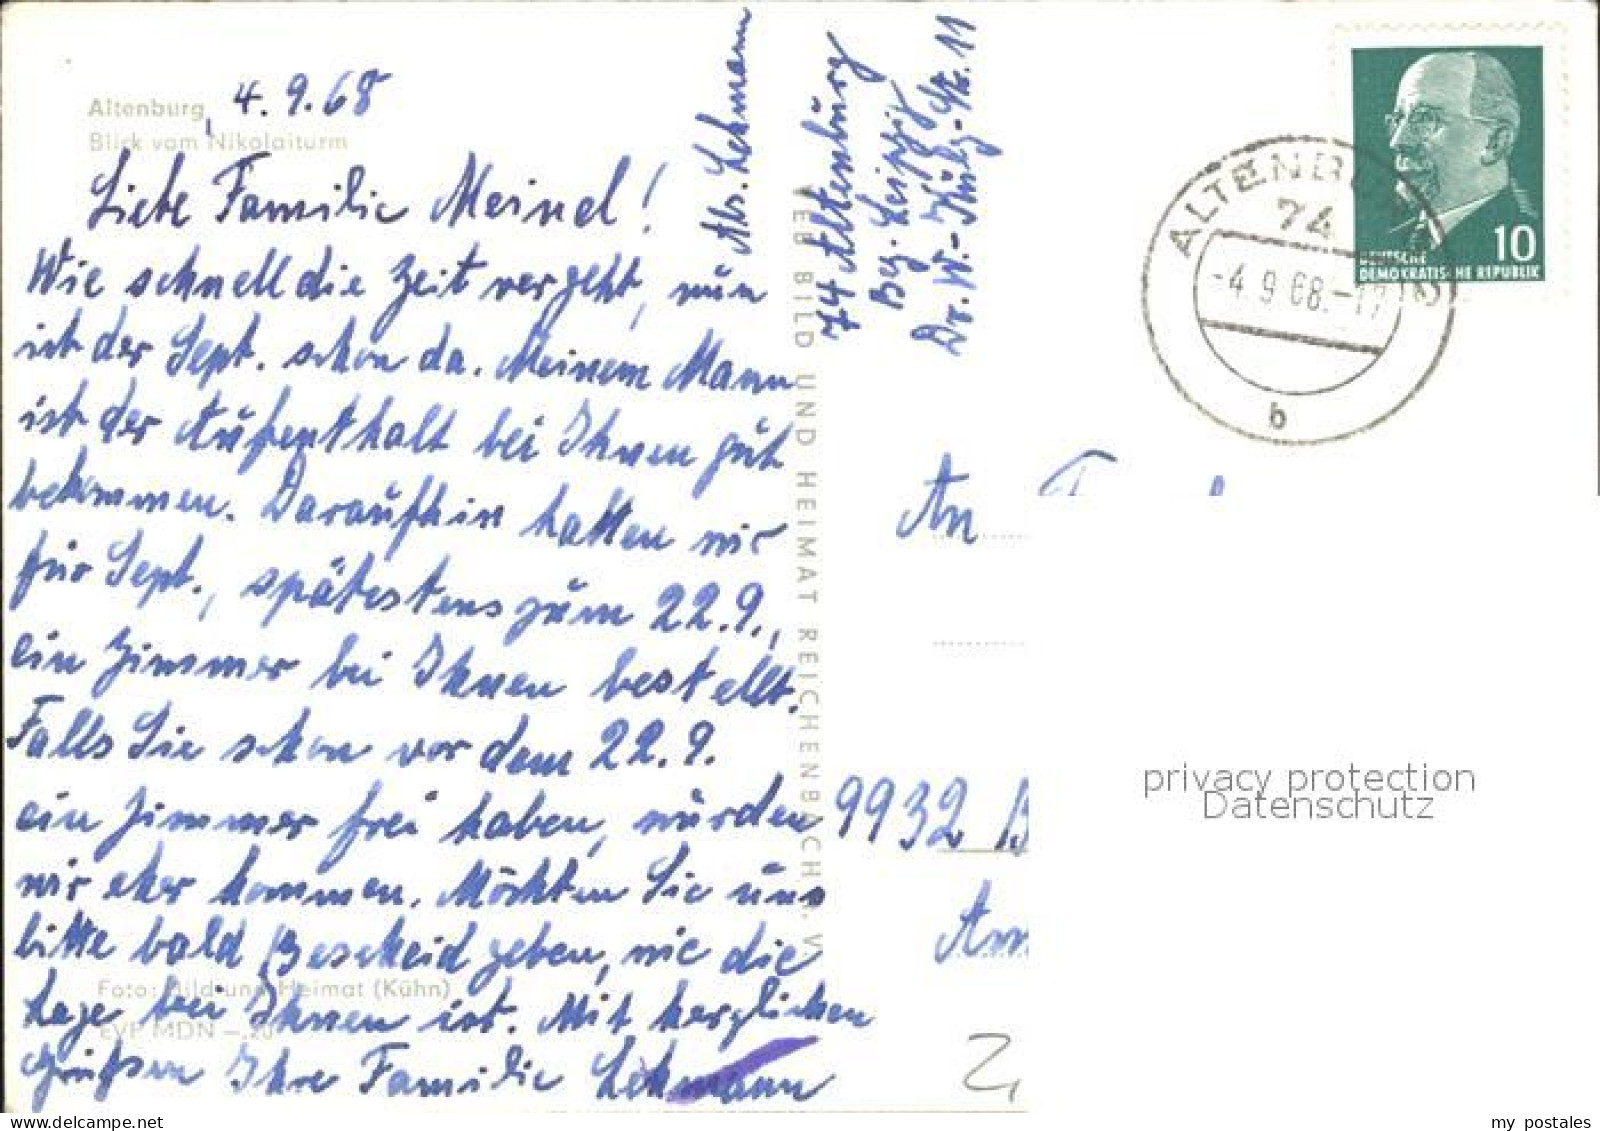 Altenburg, 4.9.68
Blick vom Nikolaiturm
Liebe Familie Meinel!
Wie schnell die Zeit vergeht, nun
ist der Sept. schon da. Meinem Mann
ist der Aufenthalt bei Ihnen gut
bekommen. Daraufhin hatten wir
für Sept., spätestens zum 22.9.,
ein Zimmer bei Ihnen bestellt.
Falls Sie schon vor dem 22.9.
ein Zimmer frei haben, würden
wir eher kommen. Möchten Sie uns
bitte bald Bescheid geben, wie die
Lage bei Ihnen ist. Mit herzlichen
Grüßen Ihre Familie Lehmann
Foto: Bild und Heimat (Kühn)
EVP MDN -.20
VEB BILD UND HEIMAT REICHENBACH i. V.
Abs. Lehmann
74 Altenburg
Bez. Leipzig
Dr. W.-Külz-Str. 11
ALTENBURG
74
-4.9.68.-17
b
10
DEUTSCHE
DEMOKRATISCHE REPUBLIK
An
9932 B
Am
privacy protection
Datenschutz
my postales